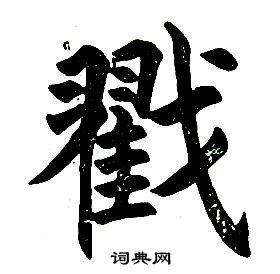 戳
词典网